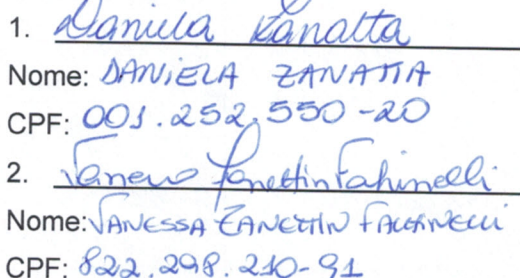 1. Daniela Zanatta
Nome: DANIELA ZANATTA
CPF: 001.252.550-20
2. Vanessa Zanettin
Nome: VANESSA ZANETTIN
CPF: 822.298.210-91